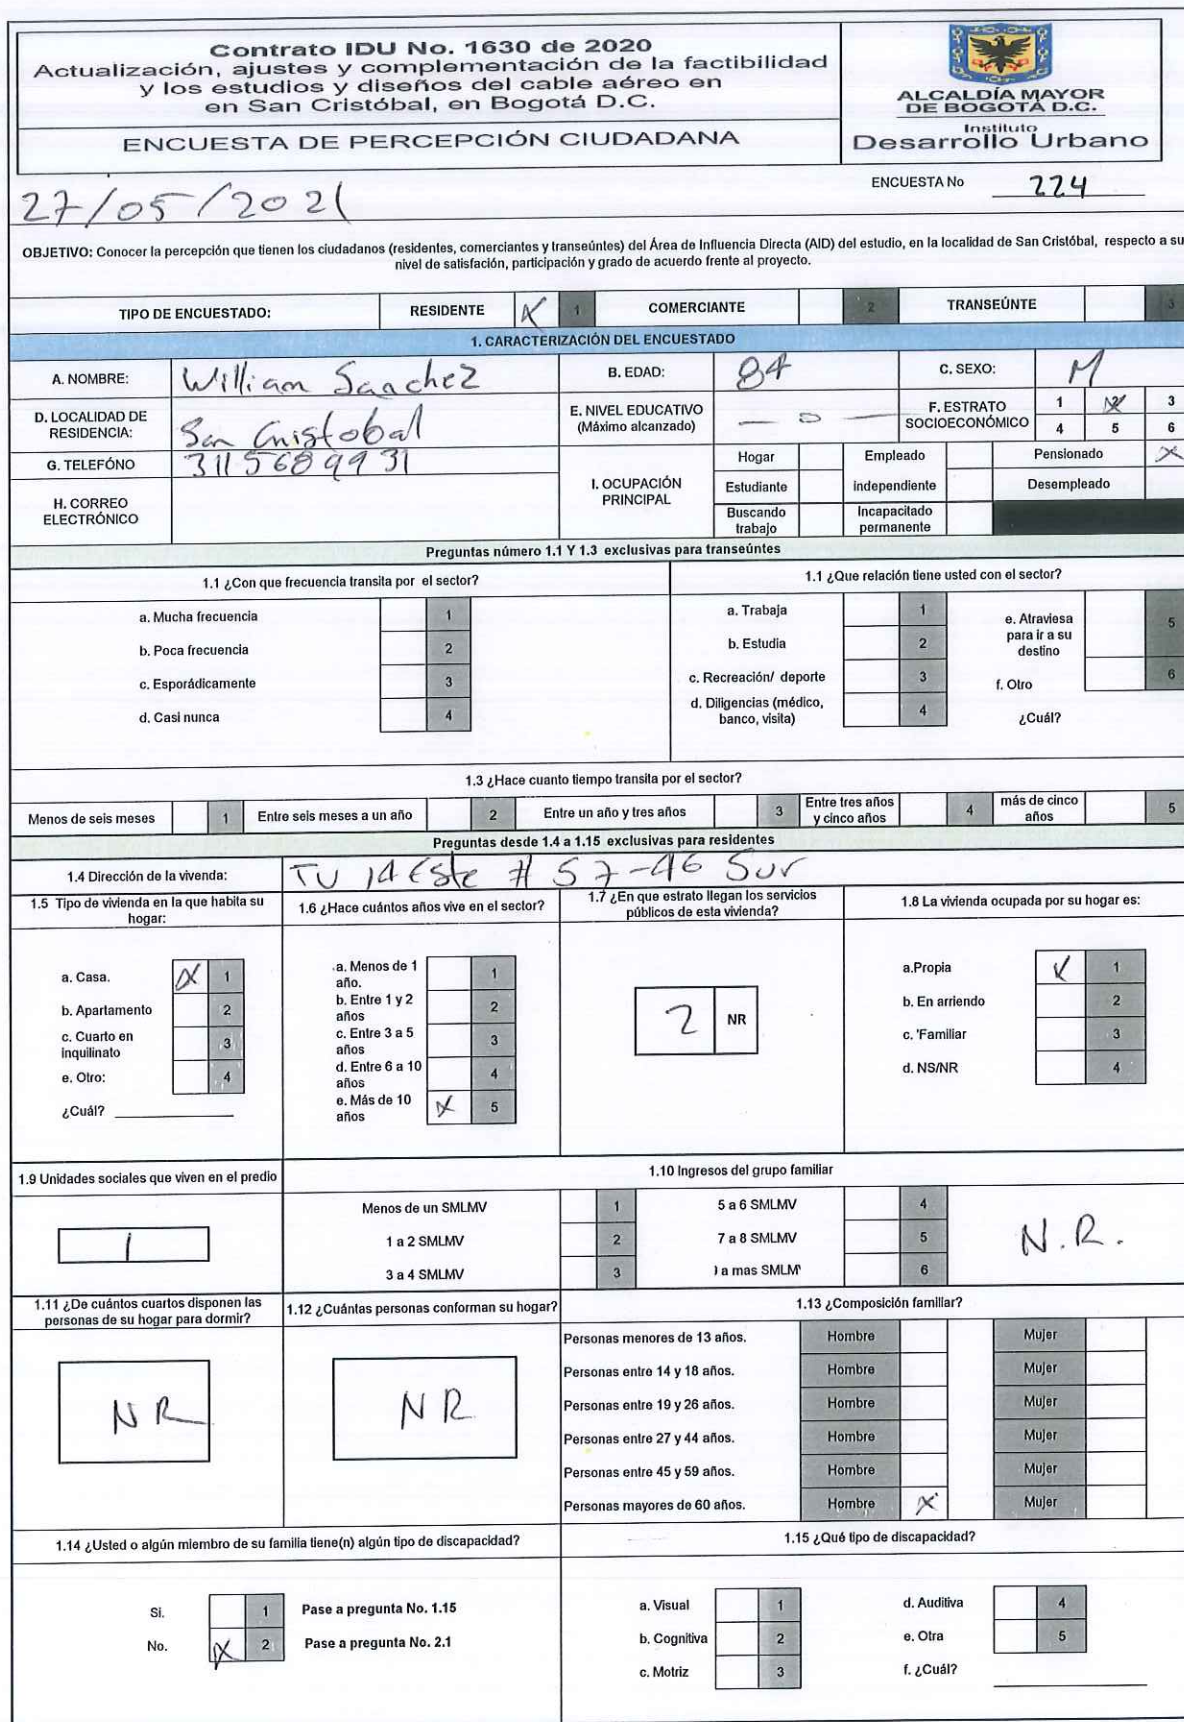 Contrato IDU No. 1630 de 2020
Actualización, ajustes y complementación de la factibilidad
y los estudios y diseños del cable aéreo en
en San Cristóbal, en Bogotá D.C.
ENCUESTA DE PERCEPCIÓN CIUDADANA
ALCALDÍA MAYOR
DE BOGOTÁ D.C.
Instituto
Desarrollo Urbano
ENCUESTA No 224
27/05/2021
OBJETIVO: Conocer la percepción que tienen los ciudadanos (residentes, comerciantes y transeúntes) del Área de Influencia Directa (AID) del estudio, en la localidad de San Cristóbal, respecto a su
nivel de satisfacción, participación y grado de acuerdo frente al proyecto.
TIPO DE ENCUESTADO: RESIDENTE X 1 COMERCIANTE 2 TRANSEÚNTE 3
1. CARACTERIZACIÓN DEL ENCUESTADO
A. NOMBRE: William Sanchez B. EDAD: 84 C. SEXO: M
D. LOCALIDAD DE
RESIDENCIA: San Cristobal
E. NIVEL EDUCATIVO
(Máximo alcanzado) — 0 —
F. ESTRATO
SOCIOECONÓMICO
1 2 X 3
4 5 6
G. TELEFÓNO 3115689931
H. CORREO
ELECTRÓNICO
I. OCUPACIÓN
PRINCIPAL
Hogar Empleado Pensionado X
Estudiante independiente Desempleado
Buscando
trabajo
Incapacitado
permanente
Preguntas número 1.1 Y 1.3 exclusivas para transeúntes
1.1 ¿Con que frecuencia transita por el sector?
a. Mucha frecuencia 1
b. Poca frecuencia 2
c. Esporádicamente 3
d. Casi nunca 4
1.1 ¿Que relación tiene usted con el sector?
a. Trabaja 1
b. Estudia 2
c. Recreación/ deporte 3
d. Diligencias (médico,
banco, visita) 4
e. Atraviesa
para ir a su
destino 5
f. Otro 6
¿Cuál?
1.3 ¿Hace cuanto tiempo transita por el sector?
Menos de seis meses 1 Entre seis meses a un año 2 Entre un año y tres años 3 Entre tres años
y cinco años 4 más de cinco
años 5
Preguntas desde 1.4 a 1.15 exclusivas para residentes
1.4 Dirección de la vivenda: TV 14 Este # 57-46 Sur
1.5 Tipo de vivienda en la que habita su
hogar:
a. Casa. X 1
b. Apartamento 2
c. Cuarto en
inquilinato 3
e. Otro: 4
¿Cuál?
1.6 ¿Hace cuántos años vive en el sector?
a. Menos de 1
año. 1
b. Entre 1 y 2
años 2
c. Entre 3 a 5
años 3
d. Entre 6 a 10
años 4
e. Más de 10
años X 5
1.7 ¿En que estrato llegan los servicios
públicos de esta vivienda?
2 NR
1.8 La vivienda ocupada por su hogar es:
a.Propia X 1
b. En arriendo 2
c. 'Familiar 3
d. NS/NR 4
1.9 Unidades sociales que viven en el predio
1
1.10 Ingresos del grupo familiar
Menos de un SMLMV 1 5 a 6 SMLMV 4
1 a 2 SMLMV 2 7 a 8 SMLMV 5
3 a 4 SMLMV 3 a mas SMLM 6
N.R.
1.11 ¿De cuántos cuartos disponen las
personas de su hogar para dormir?
NR
1.12 ¿Cuántas personas conforman su hogar?
NR
1.13 ¿Composición familiar?
Personas menores de 13 años. Hombre Mujer
Personas entre 14 y 18 años. Hombre Mujer
Personas entre 19 y 26 años. Hombre Mujer
Personas entre 27 y 44 años. Hombre Mujer
Personas entre 45 y 59 años. Hombre Mujer
Personas mayores de 60 años. Hombre X Mujer
1.14 ¿Usted o algún miembro de su familia tiene(n) algún tipo de discapacidad?
Si. 1 Pase a pregunta No. 1.15
No. X 2 Pase a pregunta No. 2.1
1.15 ¿Qué tipo de discapacidad?
a. Visual 1 d. Auditiva 4
b. Cognitiva 2 e. Otra 5
c. Motriz 3 f. ¿Cuál?